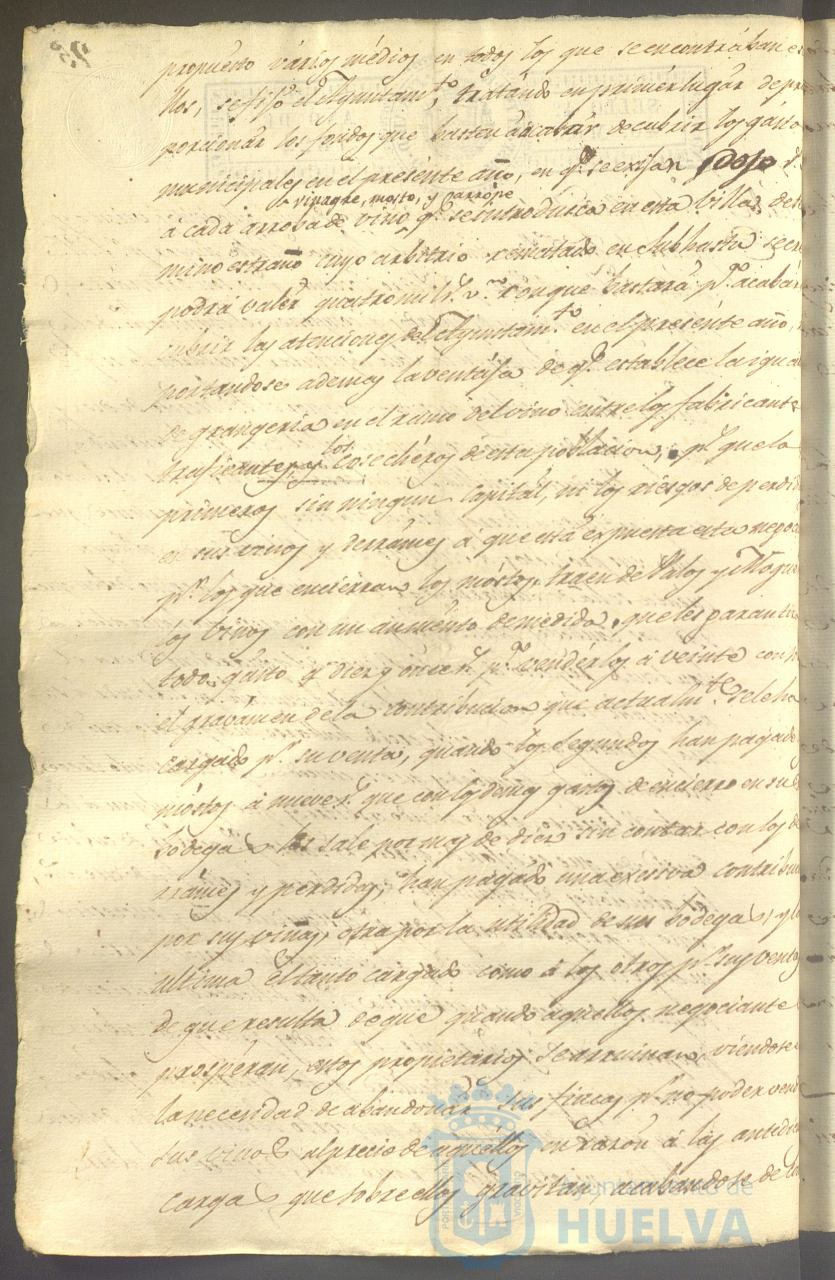 propuesto vários médios en todos los que se encontrában
llos, se fijó el Ayuntamto, tratándo en primér lugár de pro
porcionár los fondos que basten á acabár de cubrir los gásto
municipales en el presénte año, en qe. se exijan dos
vinagre, mosto, y arrópe
á cada arroba de vino qe. se introdusca en esta Villa de ter
mino estraño cuyo arbitrio rematado en Subhasta se cre
podrá valér quatro mil rs. vn. con que bastará pa. acabár
cubrir las atenciones del Ayuntamto. en el presénte año,
portandose ademas la ventája de qe. establece la igual
de grangería en el ramo del vino entre los fabricante
los
traficantes, y Cosechéros de esta poblacion, pr. que lo
primeros sin ningun Capitál, ni los riesgos de perdid
en sus vinos y derrámes á que está expuesta esta negoc
pa. los que encierran los móstos, traen de Palos y Mogue
los vinos con un auménto de medida, que les paran
todo gásto diez y once rs. pa. vendérlos á veinte con
el gravámen de la contribucion que actualmte. se le ha
cargado pr. su venta, quando los Segundos han pagado
móstos á nueve rs. que con los demas gastos de encierro en su
bodega les sale por mas de diez sin contar con los de
rrámes y perdidas, han pagádo una exesiva contribu
por sus viñas, otra por la utilidad de su bodega, y
ultima el tanto cargado como á los otros pr. sus ventas
de que resulta de que quando aquellos negociante
prospéran, estos propietarios se arruinan, viendose
la necesidad de abandonár sus fincas pr. no poder vend
sus vinos al precio de aquellos en razón á las antedi
cargas que sobre ellos gravitan, acabandose de
Ayuntamiento de
HUELVA